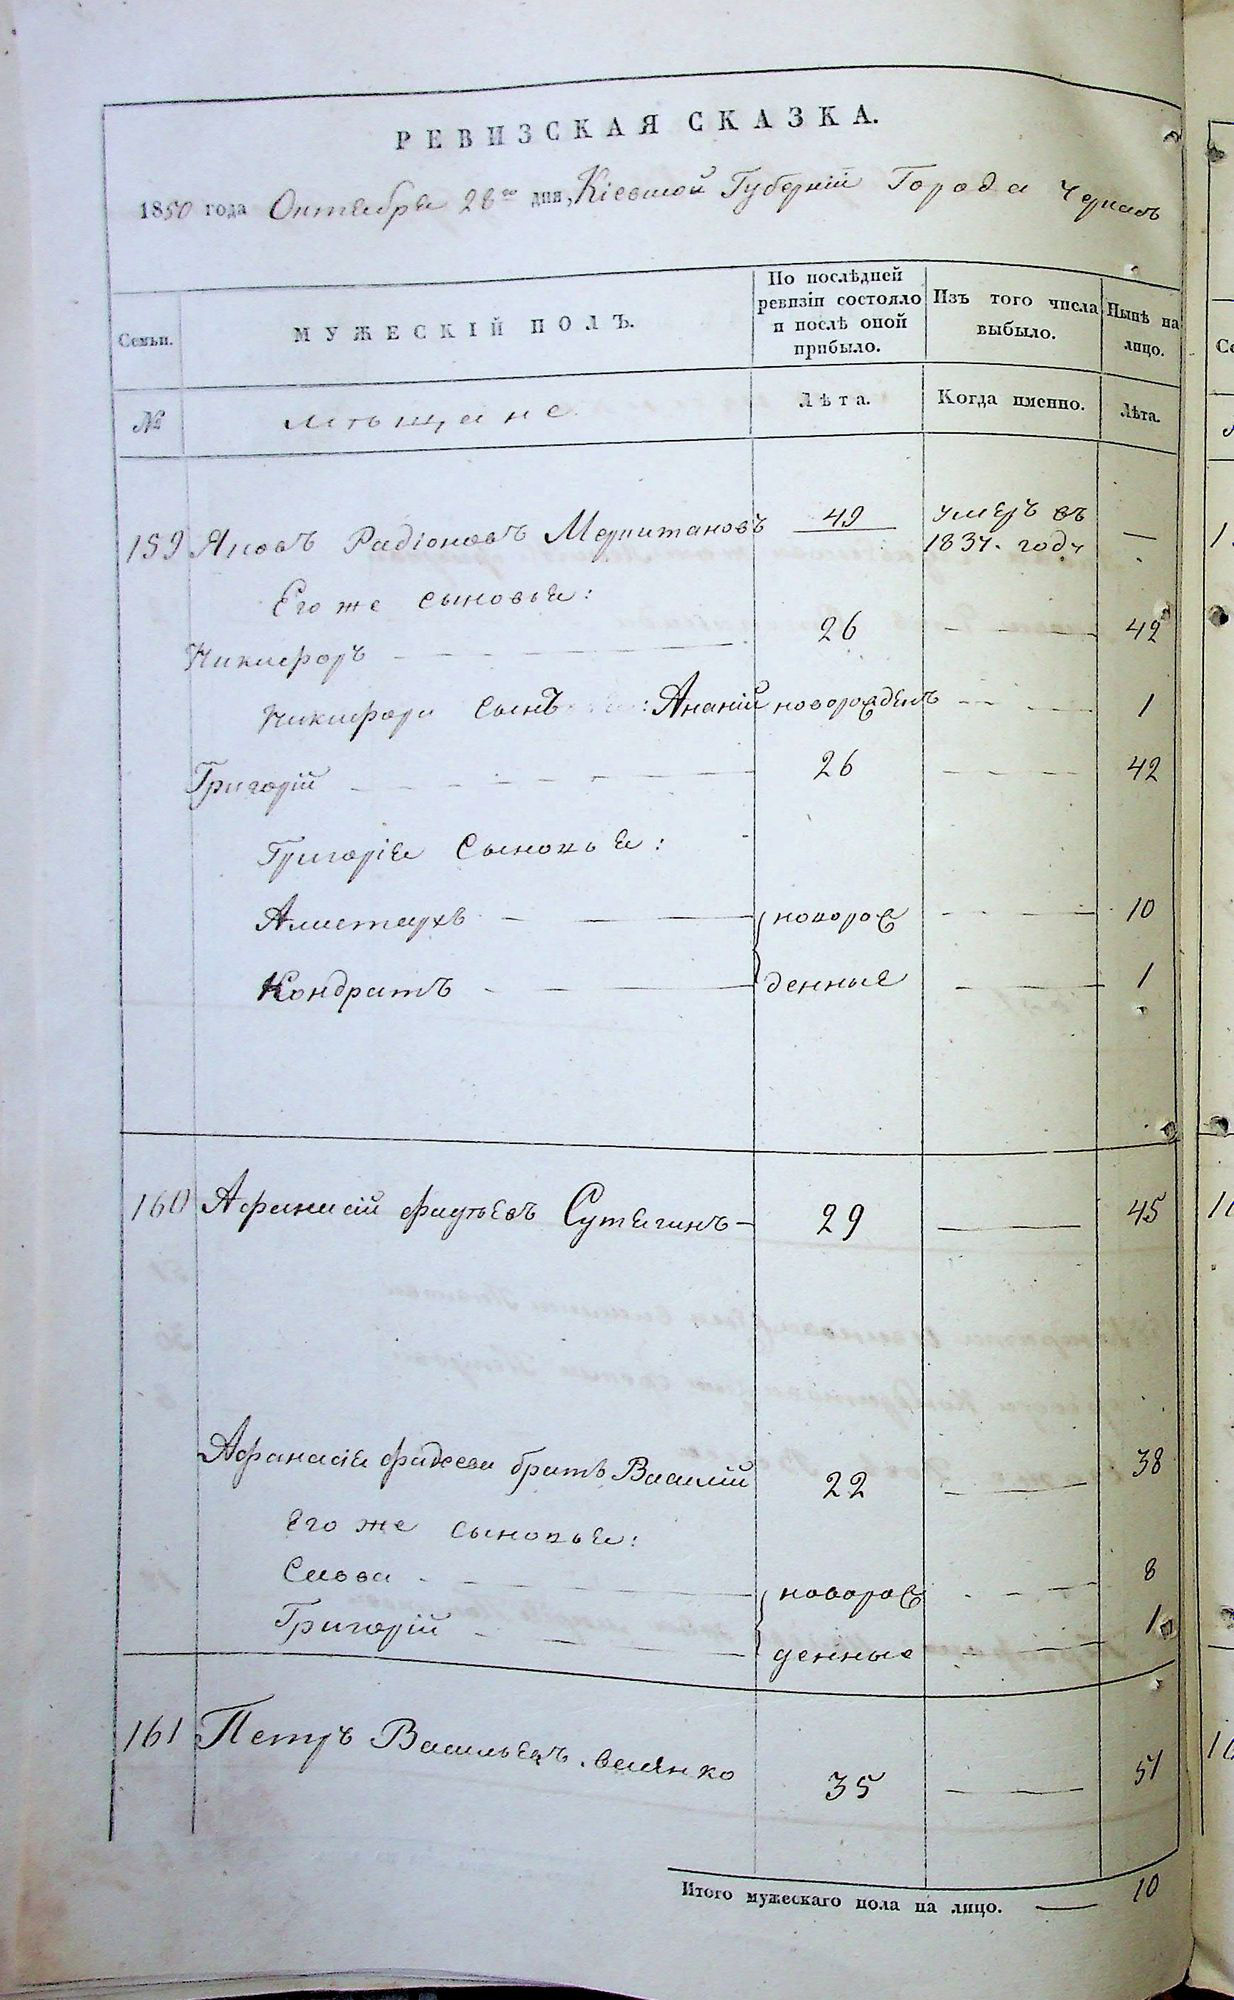 РЕВИЗСКАЯ СКАЗКА.
1850 года Октября 28го дня, Кіевской Губерніи Города Черкасъ
Семьи.
МУЖЕСКІЙ ПОЛЪ.
По послѣдней
ревизіи состояло
и послѣ оной
прибыло.
Изъ того числа
выбыло.
Нынѣ на
лицо.
№
мѣщане
Лѣта.
Когда именно.
Лѣта.
159 Яковъ Радіоновъ 49 умеръ въ
1837. году —
Его же сыновья:
Никифоръ 26 42
Никифора сынъ: Ананій новорожденъ 1
Григорій 26 42
Григорія Сыновья:
новорож 10
Кондратъ денные 1
160 Афанасій Фадѣевъ Сутягинъ 29 45
Афанасія Фадѣева братъ Василій 22 38
Его же сыновья:
Савва новорож 8
Григорій денные 1
161 Петръ Васильевъ 35 51
Итого мужескаго пола на лицо. — 10